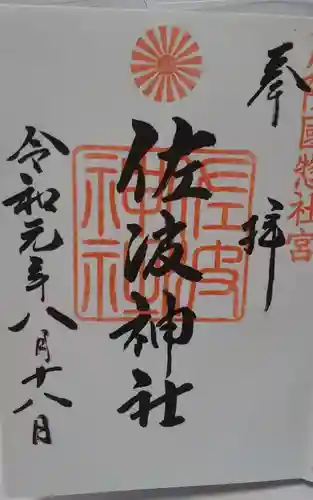 奉拝
國惣社宮
佐波神社
佐波神社
令和元年八月十八日